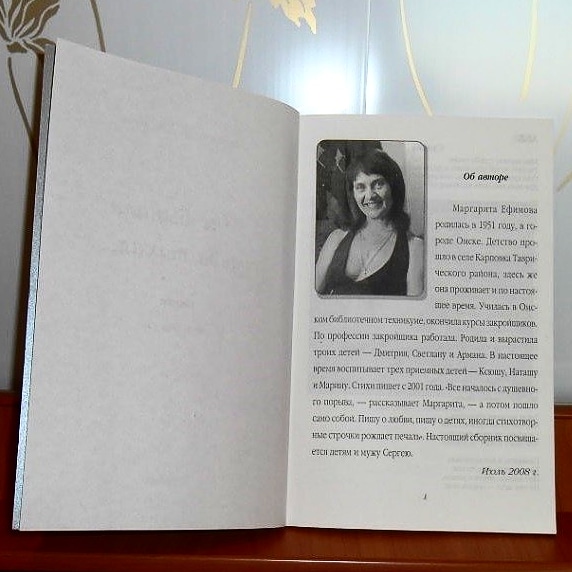 Об авторе
Маргарита Ефимова
родилась в 1951 году, в го-
роде Омске. Детство про-
шло в селе Карповка Таври-
ческого района, здесь же
она проживает и по настоя-
щее время. Училась в Омс-
ком библиотечном техникуме, окончила курсы закройщиков.
По профессии закройщика работала. Родила и вырастила
троих детей — Дмитрия, Светлану и Ариана. В настоящее
время воспитывает трех приемных детей — Ксюшу, Наташу
и Марину. Стихи пишет с 2001 года. «Все началось с душевно-
го порыва, — рассказывает Маргарита, — а потом пошло
само собой. Пишу о любви, пишу о детях, иногда стихотвор-
ные строчки рождает печаль». Настоящий сборник посвяща-
ется детям и мужу Сергею.
Июль 2008 г.